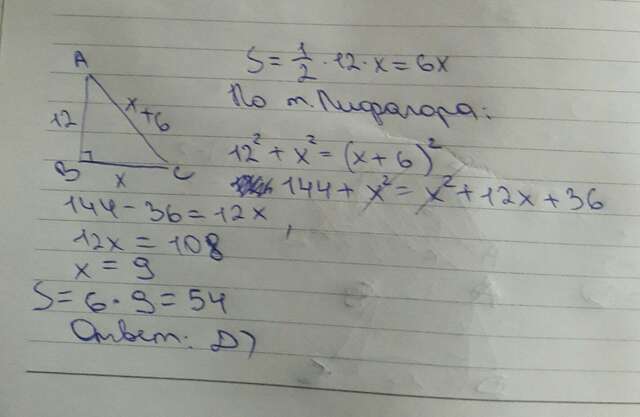 A
12
x+6
B
x
C
S = 1/2 · 12 · x = 6x
По т. Пифагора:
12² + x² = (x + 6)²
144 + x² = x² + 12x + 36
144 - 36 = 12x
12x = 108
x = 9
S = 6 · 9 = 54
Ответ: D)